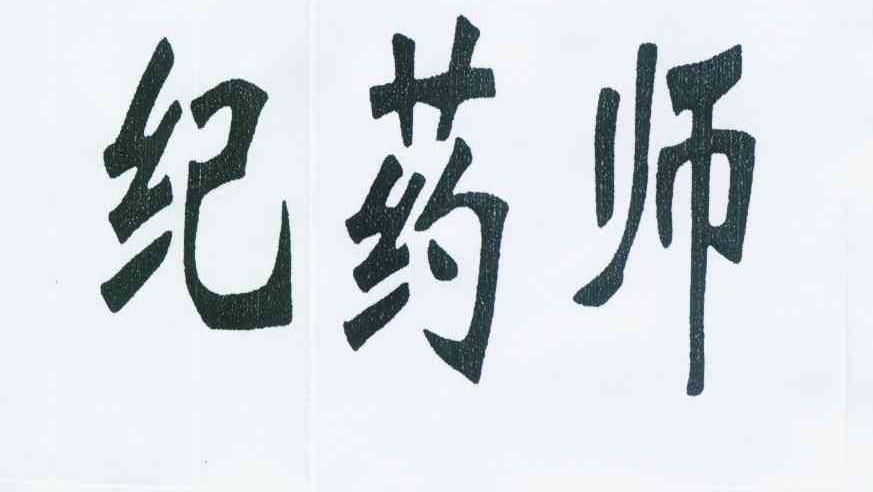 纪药师